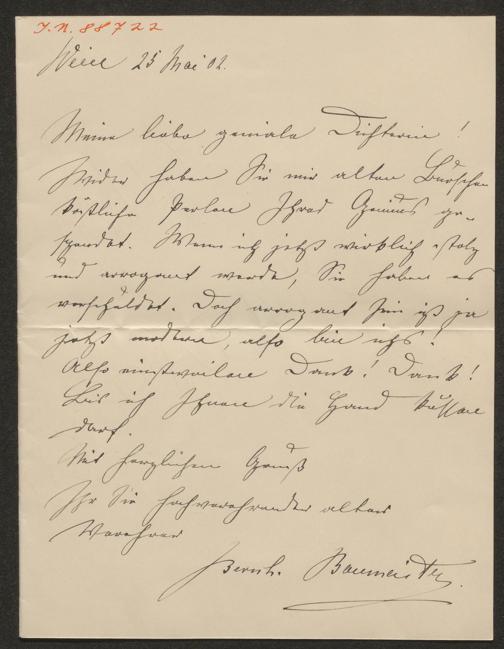 I.N. 88722
Wien 25 Mai 02.
Meine liebe geniale Dichterin!
Wieder haben Sie mir alten Burschen
köstliche Perlen Ihres Genius ge-
spendet. Wenn ich jetzt wirklich stolz
und arrogant werde, Sie haben es
verschuldet. Doch arrogant sein ist ja
jetzt modern, also bin ichs!
Also einstweilen Dank! Dank!
bis ich Ihnen die Hand küssen
darf.
Mit herzlichem Gruß
Ihr Sie hochverehrender alter
Verehrer
Bernh. Baumeister.